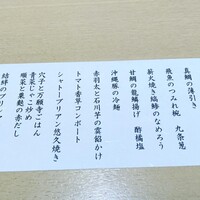 真鯛の薄引き
飛魚のつみれ椀　九条葱
薪火焼き縞鯵のなめろう
甘鯛の龍鱗揚げ　酢橘塩
沖縄豚の冷麺
赤羽太と石川芋の雲餡かけ
トマト香草コンポート
シャトーブリアン悠久焼き
穴子と万願寺ごはん
青菜じゃこ炒め
順菜と粟麩の赤だし